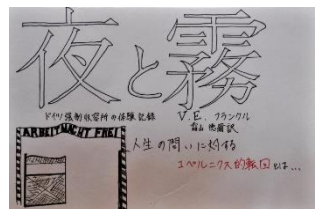 夜と霧
ドイツ強制収容所の体験記録
V.E.フランクル
霜山徳爾訳
ARBEIT MACHT FREI
人生の問いに対する
コペルニクス的転回とは...